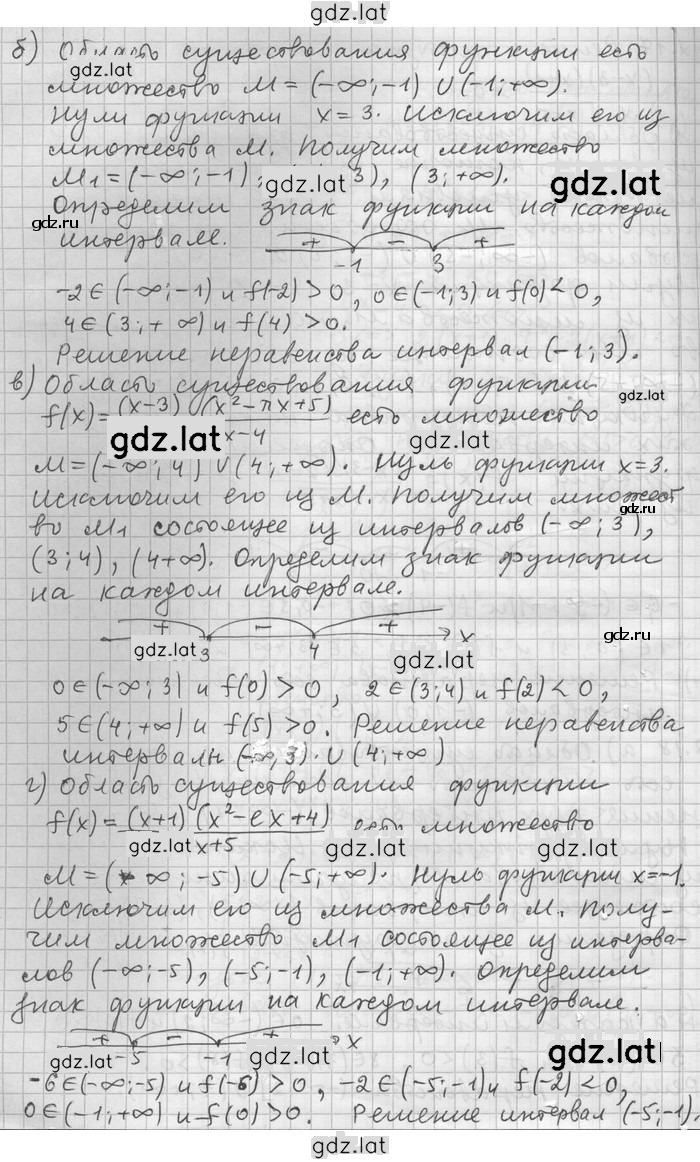 gdz.lat
б) Область существования функции есть
gdz.lat
множество M = (-∞;-1) ∪ (-1;+∞).
Нули функции x = 3. Исключим его из
множества M. Получим множество
M₁ = (-∞;-1), gdz.lat 3), (3;+∞). gdz.lat
Определим знак функции на каждом
gdz.ru
интервале. + - +
-1 3
-2∈(-∞;-1) и f(-2) > 0, 0∈(-1;3) и f(0) < 0,
4∈(3;+∞) и f(4) > 0.
Решение неравенства интервал (-1;3).
в) Область существования функции
gdz.lat
f(x) = (x-3) (x²-πx+5) / x-4 есть множество
gdz.lat gdz.lat
M = (-∞;4) ∪ (4;+∞). Нуль функции x=3.
Исключим его из M. Получим множест
gdz.ru
во M₁ состоящее из интервалов (-∞;3),
(3;4), (4+∞). Определим знак функции
на каждом интервале.
+ - + x
gdz.ru
gdz.lat 3 4 gdz.lat
0∈(-∞;3) и f(0) > 0, 2∈(3;4) и f(2) < 0,
5∈(4;+∞) и f(5) > 0. Решение неравенства
интервалы (-∞,3) ∪ (4;+∞)
г) Область существования функции
f(x) = (x+1) (x²-ex+4) / x+5 есть множество
gdz.lat gdz.lat gdz.lat
M = (-∞;-5) ∪ (-5;+∞). Нуль функции x=-1.
Исключим его из множества M. Полу-
чим множество M₁ состоящее из интерва-
лов (-∞;-5), (-5;-1), (-1;+∞). Определим
знак функции на каждом интервале.
+ - + x
gdz.lat -5 -1 gdz.lat gdz.lat
-6∈(-∞;-5) и f(-6) > 0, -2∈(-5;-1) и f(-2) < 0,
0∈(-1;+∞) и f(0) > 0. Решение интервал (-5;-1).
gdz.lat